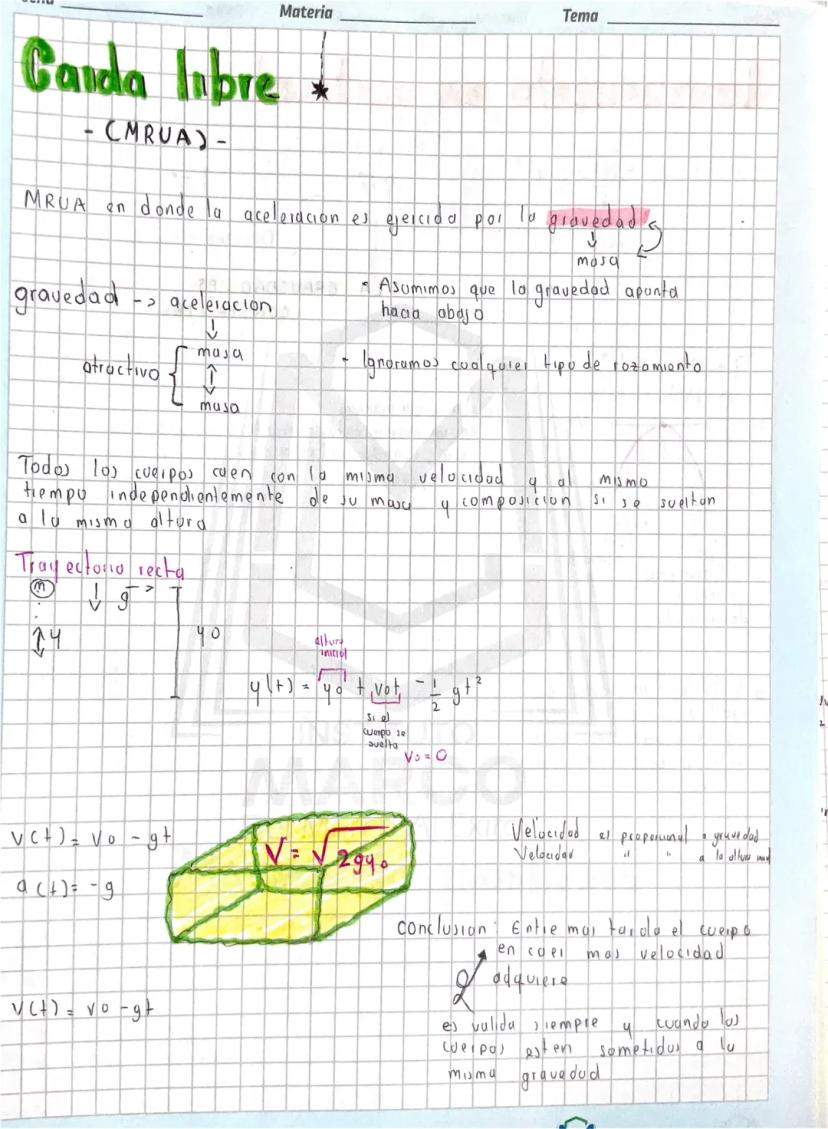 Materia
Tema
Caida libre
- (MRUA) -
MRUA en donde la aceleracion es ejercida por la gravedad
masa
gravedad -> aceleracion
• Asumimos que la gravedad apunta
hacia abajo
atractivo
masa
masa
- Ignoramos cualquier tipo de rozamiento
Todos los cuerpos caen con la misma velocidad y al mismo
tiempo independientemente de su masa y composicion si se sueltan
a la misma altura
Trayectoria recta
m
g
y
yo
altura
inicial
y(t) = yo + vot - 1/2 gt²
si el
cuerpo se
suelta
Vo = 0
INSTITUTO
MARCO
v(t) = vo - gt
V = √2gyo
Velocidad es proporional a gravedad
Velocidad " " a la altura
a(t) = -g
conclusion: Entre mas tarda el cuerpo
en caer mas velocidad
adquiere
v(t) = vo - gt
es valida siempre y cuando los
cuerpos esten sometidos a la
misma gravedad